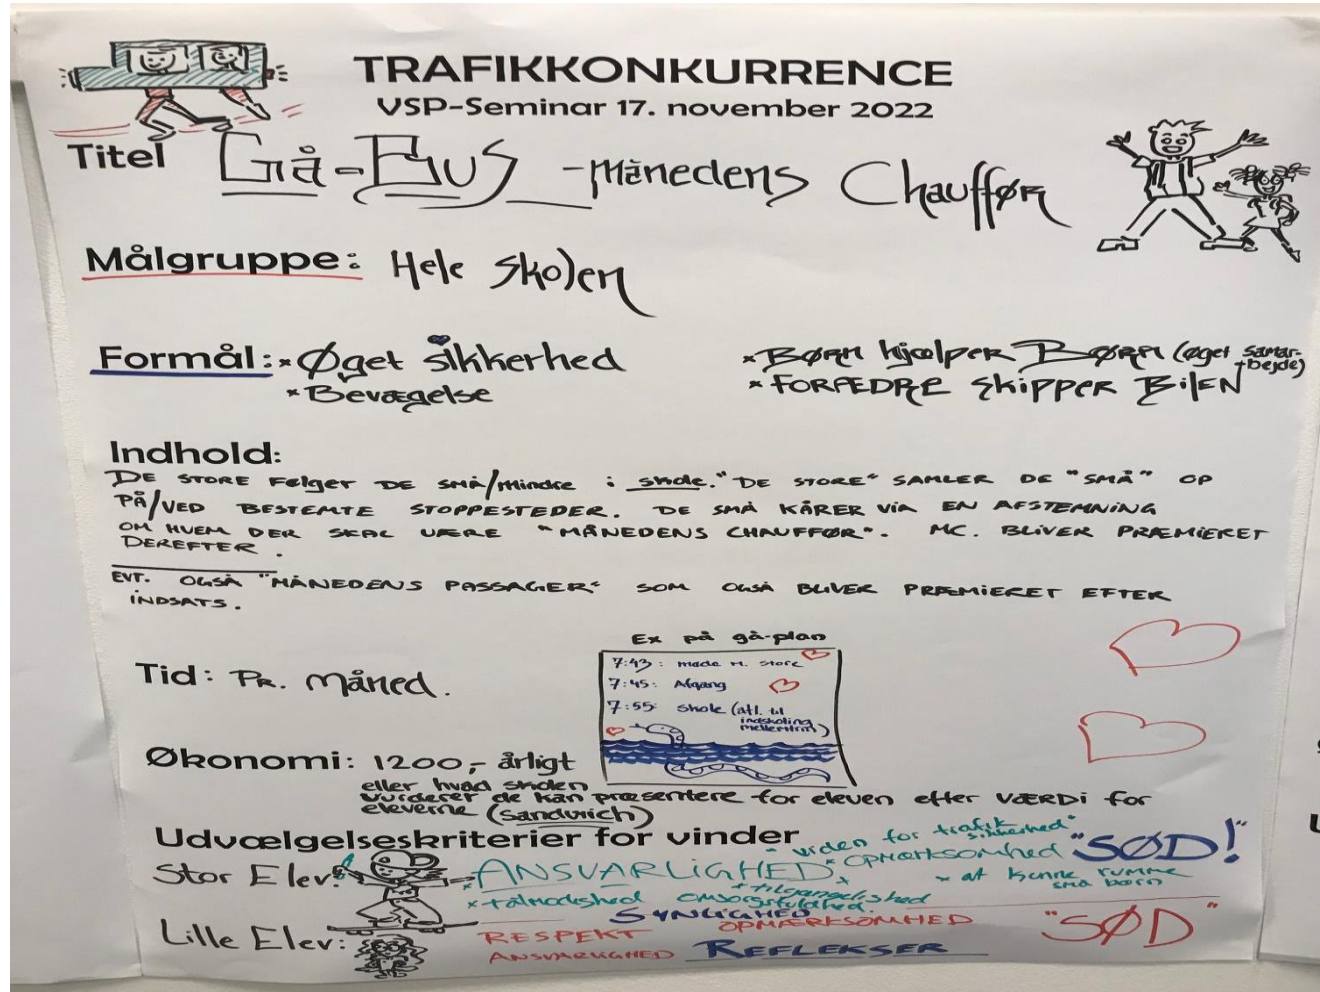 TRAFIKKONKURRENCE
VSP-Seminar 17. november 2022
Titel Gå-Bus - Månedens Chauffør
Målgruppe: Hele skolen
Formål: * Øget sikkerhed
* Bevægelse
* BØRN hjælper BØRN (øget samar-
bejde)
* FORÆDRE skipper BilEN
Indhold:
DE STORE Følger DE SMÅ/mindre i skole. "DE STORE" SAMLER DE "SMÅ" OP
PÅ/VED BESTEMTE STOPPESTEDER. DE SMÅ KÅRER VIA EN AFSTEMNING
OM HVEM DER SKAL VÆRE "MÅNEDENS CHAUFFØR". MC. BLIVER PRÆMIERET
DEREFTER.
EVT. OGSÅ "MÅNEDENS PASSAGER" SOM OGSÅ BLIVER PRÆMIERET EFTER
INDSATS.
Tid: Pr. måned.
Ex på gå-plan
7:43: møde M. store
7:45: Afgang
7:55: skole (afl. til
indskoling
mellemtrin)
Økonomi: 1200,- årligt
eller hvad skolen
vurderer de kan præsentere for eleven efter VÆRDi for
eleverne (sandwich)
Udvælgelseskriterier for vinder
Stor Elev:
* ANSVARLIGHED
* viden for trafik
sikkerhed"
* opmærksomhed
"SØD!"
* tålmodighed
* tilgængelighed
omsorgsfuldhed.
* at kunne rumme
små børn
Lille Elev:
SYNLIGHED
RESPEKT
OPMÆRKSOMHED
"SØD"
ANSVARLIGHED
REFLEKSER